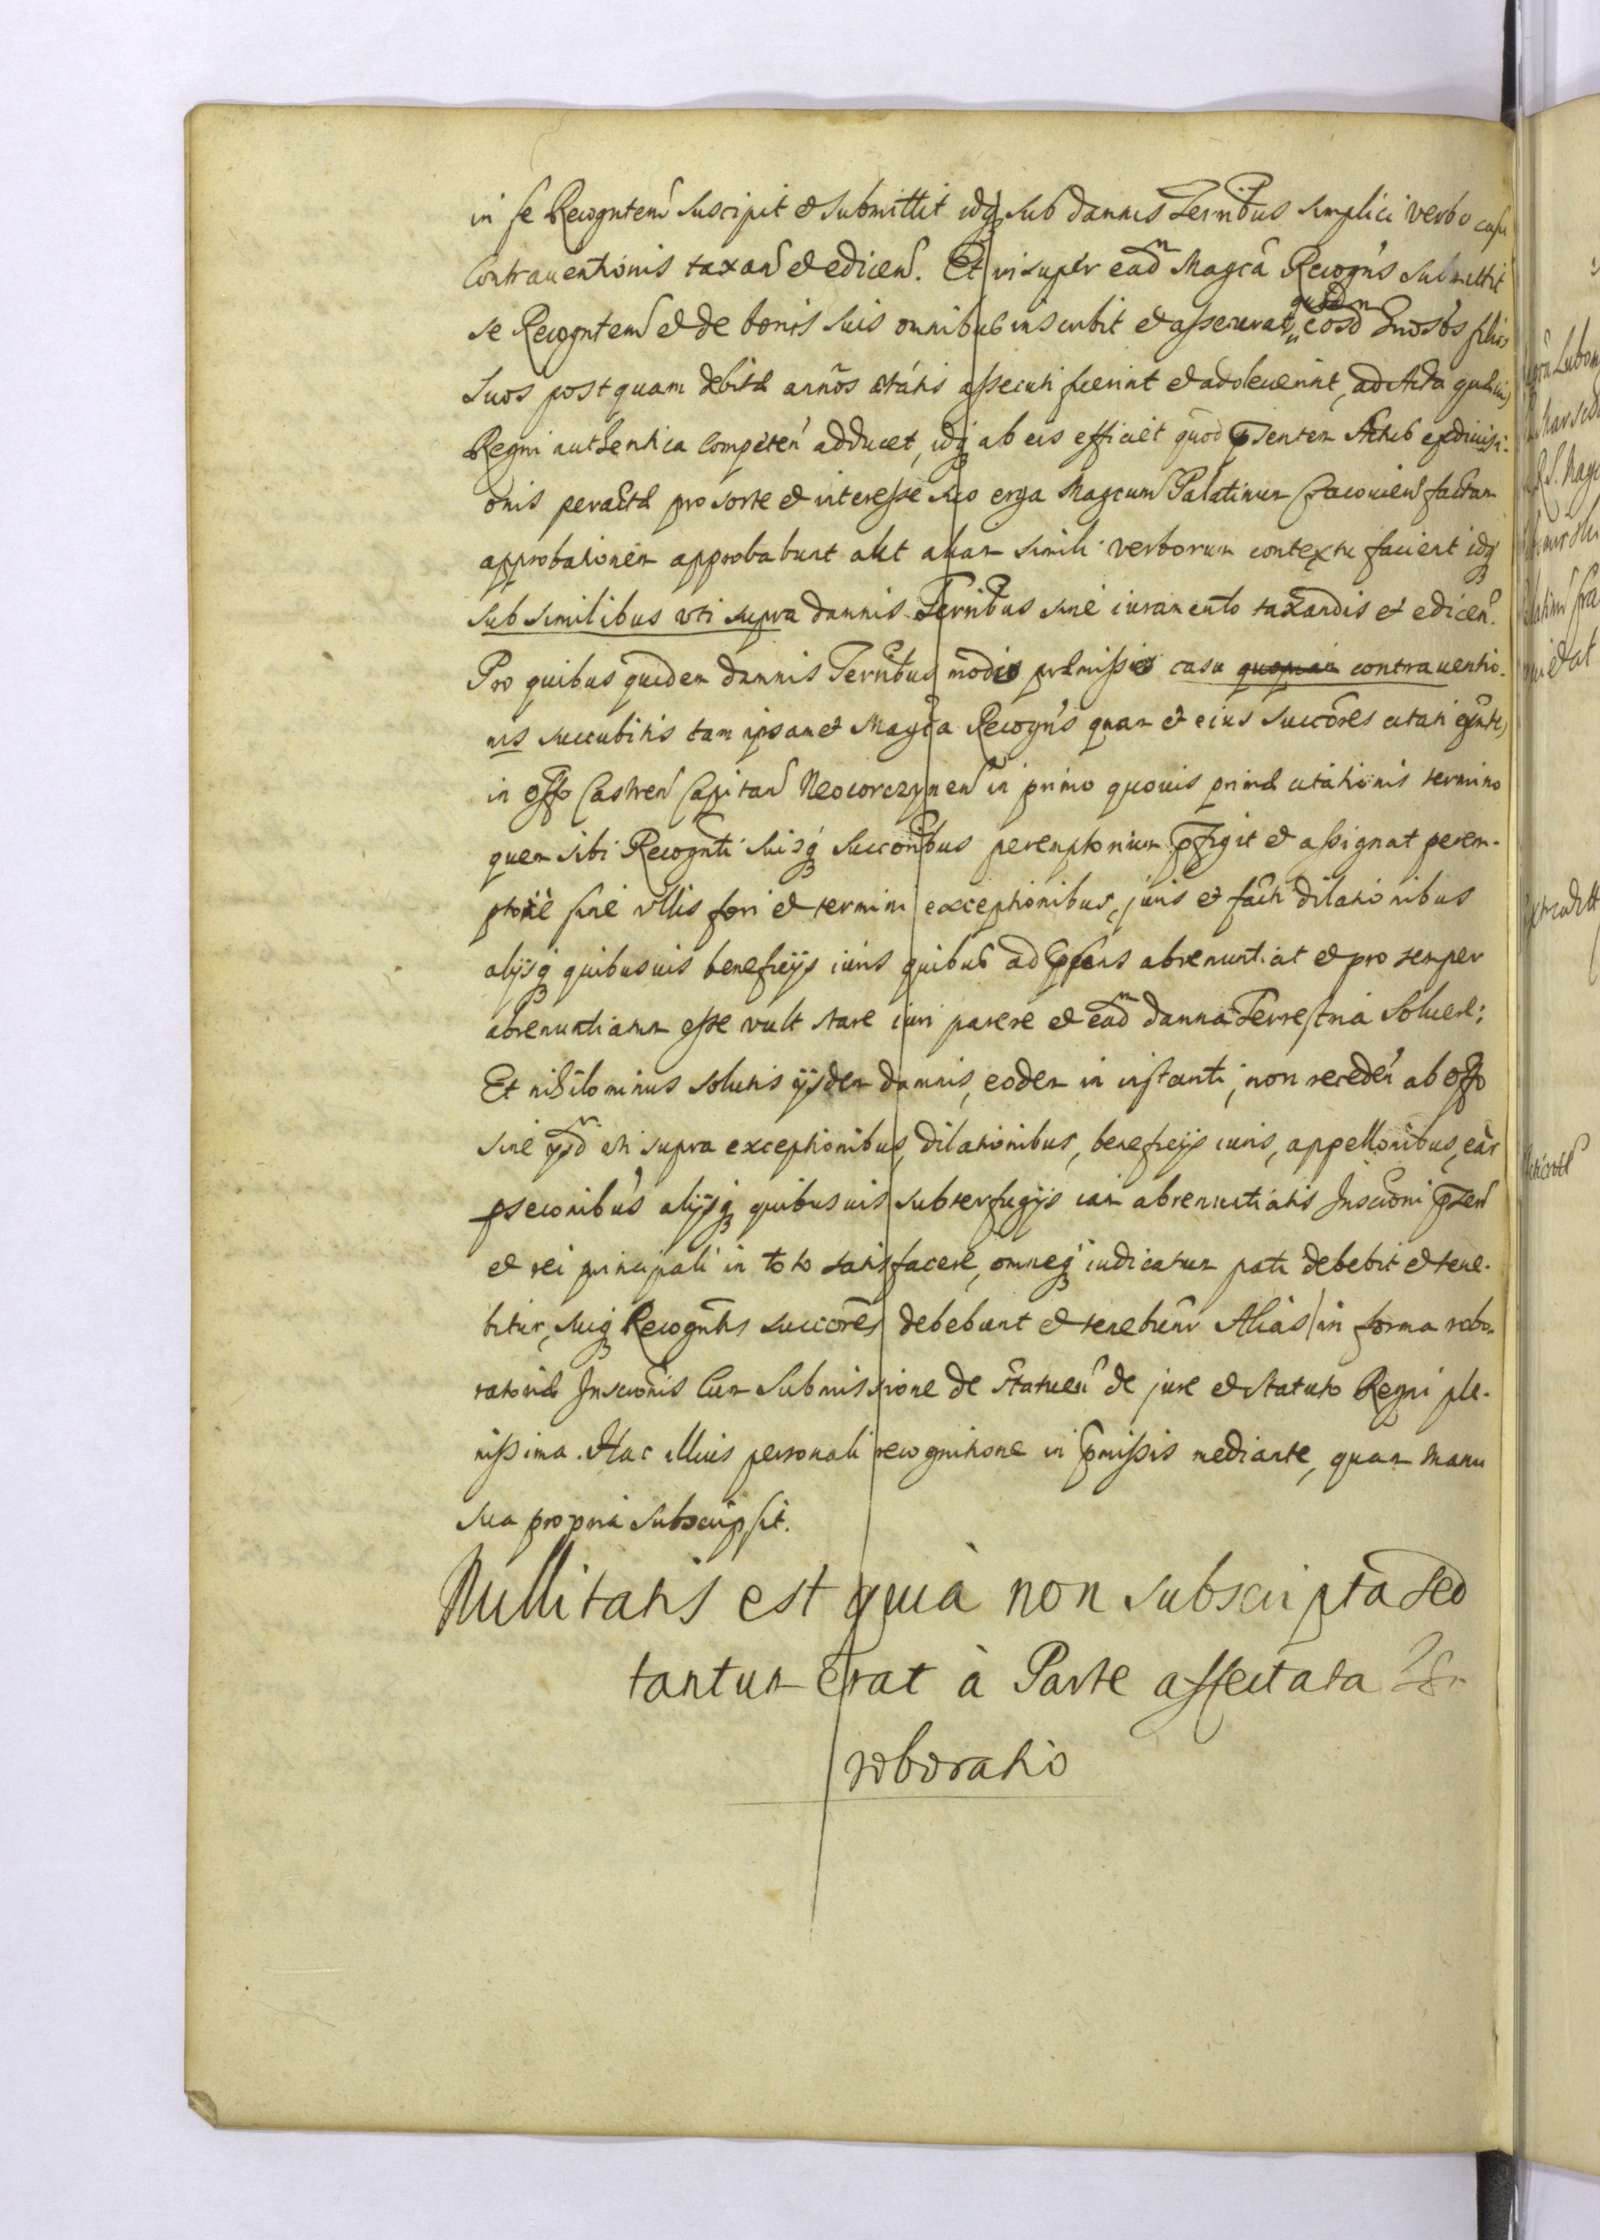 in se Recogntem suscipit et submittit idq sub damnis Terribus simplici verbo casu
Contrauentionis taxan et edicen. Et insuper ead Magca Recogns submittit
se Recogntem et de bonis suis omnibus inscribit et assecurat, quod eosd Gnosos filios
suos postquam debitæ annos ætatis assecuti fuerint et adoleuerint, ad Acta quæuis
Regni authentica competen adducet, idq ab eis efficiet quod psentem Actus exdiuisi-
onis peractæ pro sorte et interesse suo erga Magcum Palatinum Cracouien factam
approbationem approbabunt aut aliam simili verborum contextu facient idq
sub similibus vti supra damnis Terribus sine iuramento taxandis et edicen.
Pro quibus quidem damnis Terribus modis præmissis casu quopiam contrauentio-
nis succubitis tam ipsamet Magca Recogns quam et eius succores citati
in offo Castren Capitan Neocorczynen in primo quouis primæ citationis termino
quem sibi Recognti suisq succoribus peremptorium pfigit et assignat perem-
ptorie sine vllis fori et termini exceptionibus, juris et facti dilationibus
alijsq quibusuis beneficijs iuris quibus ad psens abrenuntiat et pro semper
abrenuntiatum esse vult stare iuri parere et ead damna Terrestria soluere;
Et nihilominus solutis ijsdem damnis, eodem in instanti, non receden ab offo
sine ijsd vti supra exceptionibus, dilationibus, beneficijs iuris, appellonibus, ear
pseconibus alijsq quibusuis subterfugijs iam abrenuntiatis Inscrioni psen
et rei principali in toto satisfacere, omneq iudicatum pati debebit et tene-
bitur, suiq Recogntis succores debebunt et tenebunr Alias in forma robo-
ratoriæ Inscrionis cum submissione de Statuen de jure et statuto Regni ple-
nissima. Hac illius personali recognitione in pmissis mediante, quam manu
sua propria subscripsit.
Nullitatis est quià non subscripta sed
tantum erat à Parte affectata
roboratio